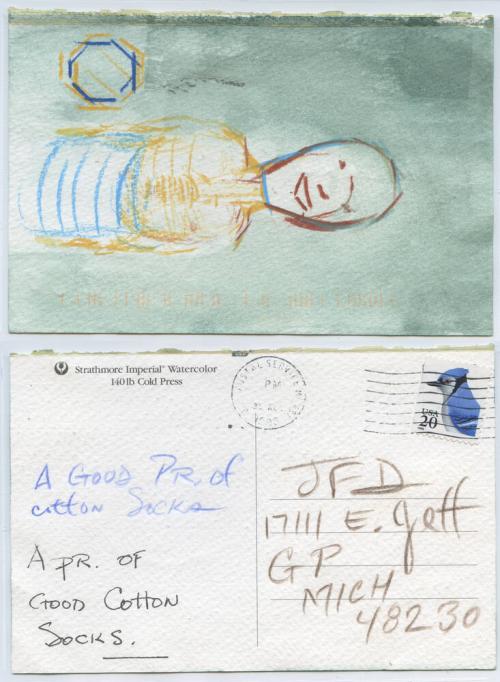 Strathmore Imperial® Watercolor
140 lb Cold Press
POSTAL SERVICE
PM
USA
20
A GOOD PR. of
cotton Socks
A PR. OF
GOOD COTTON
SOCKS.
JFD
17111 E. Jeff
GP
MICH
48230